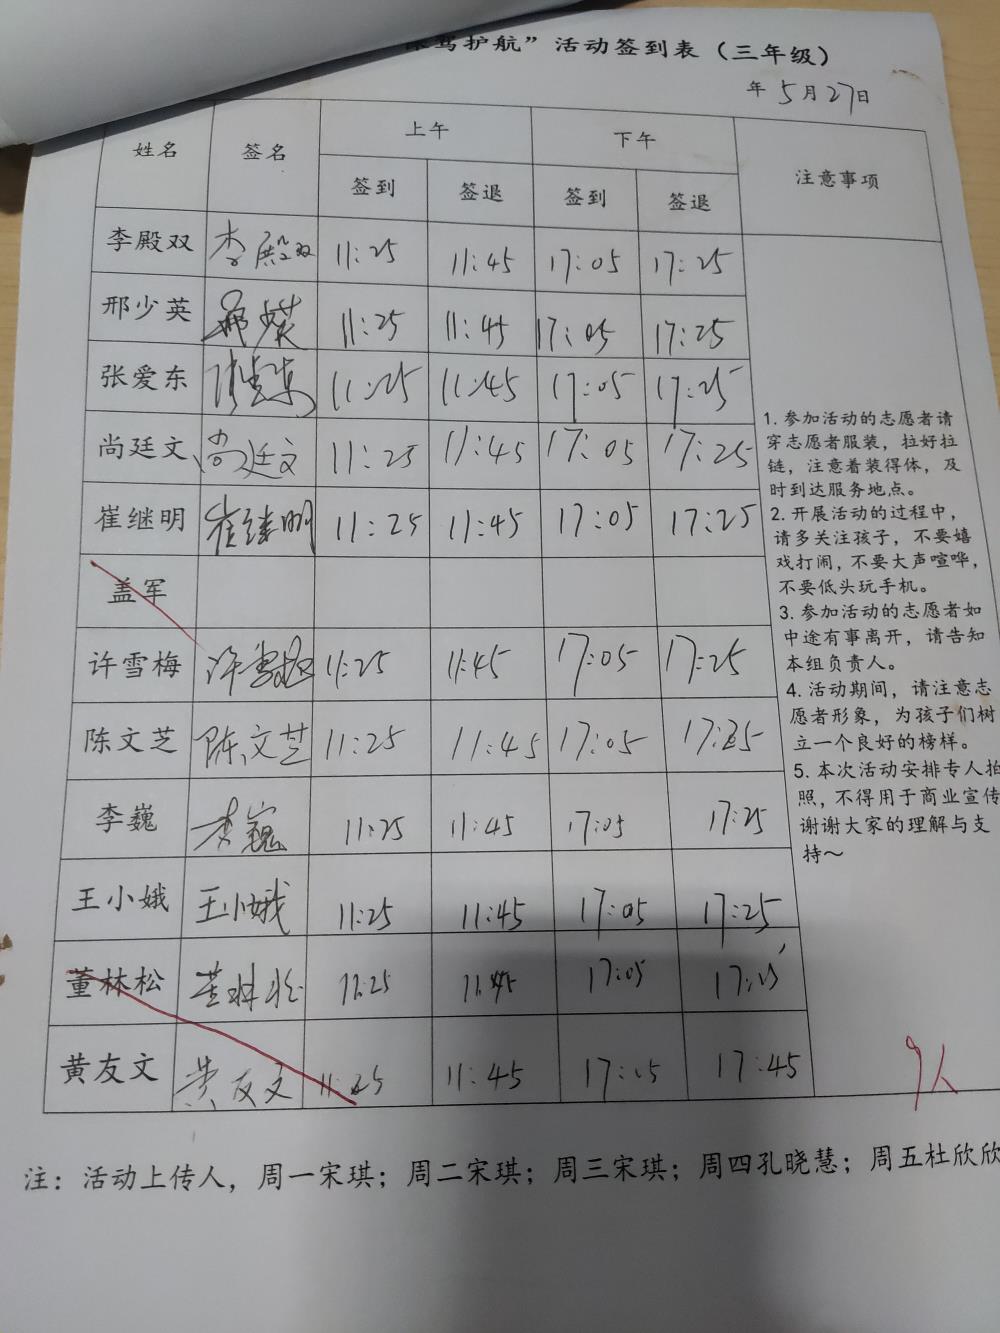 驾护航”活动签到表（三年级）
年5月27日
姓名 签名 上午 下午 注意事项
签到 签退 签到 签退
李殿双 李殿双 11:25 11:45 17:05 17:25
邢少英 邢少英 11:25 11:45 17:05 17:25
张爱东 张爱东 11:25 11:45 17:05 17:25
尚廷文 尚廷文 11:25 11:45 17:05 17:25
崔继明 崔继明 11:25 11:45 17:05 17:25
盖军
许雪梅 许雪梅 11:25 11:45 17:05 17:25
陈文芝 陈文芝 11:25 11:45 17:05 17:25
李巍 李巍 11:25 11:45 17:05 17:25
王小娥 王小娥 11:25 11:45 17:05 17:25
董林松 董林松 11:25 11:45 17:05
黄友文 黄友文 11:25 11:45 17:05 17:45
1. 参加活动的志愿者请
穿志愿者服装，拉好拉
链，注意着装得体，及
时到达服务地点。
2. 开展活动的过程中，
请多关注孩子，不要嬉
戏打闹，不要大声喧哗，
不要低头玩手机。
3. 参加活动的志愿者如
中途有事离开，请告知
本组负责人。
4. 活动期间，请注意志
愿者形象，为孩子们树
立一个良好的榜样。
5. 本次活动安排专人拍
照，不得用于商业宣传
谢谢大家的理解与支
持～
9人
注：活动上传人，周一宋琪；周二宋琪；周三宋琪；周四孔晓慧；周五杜欣欣